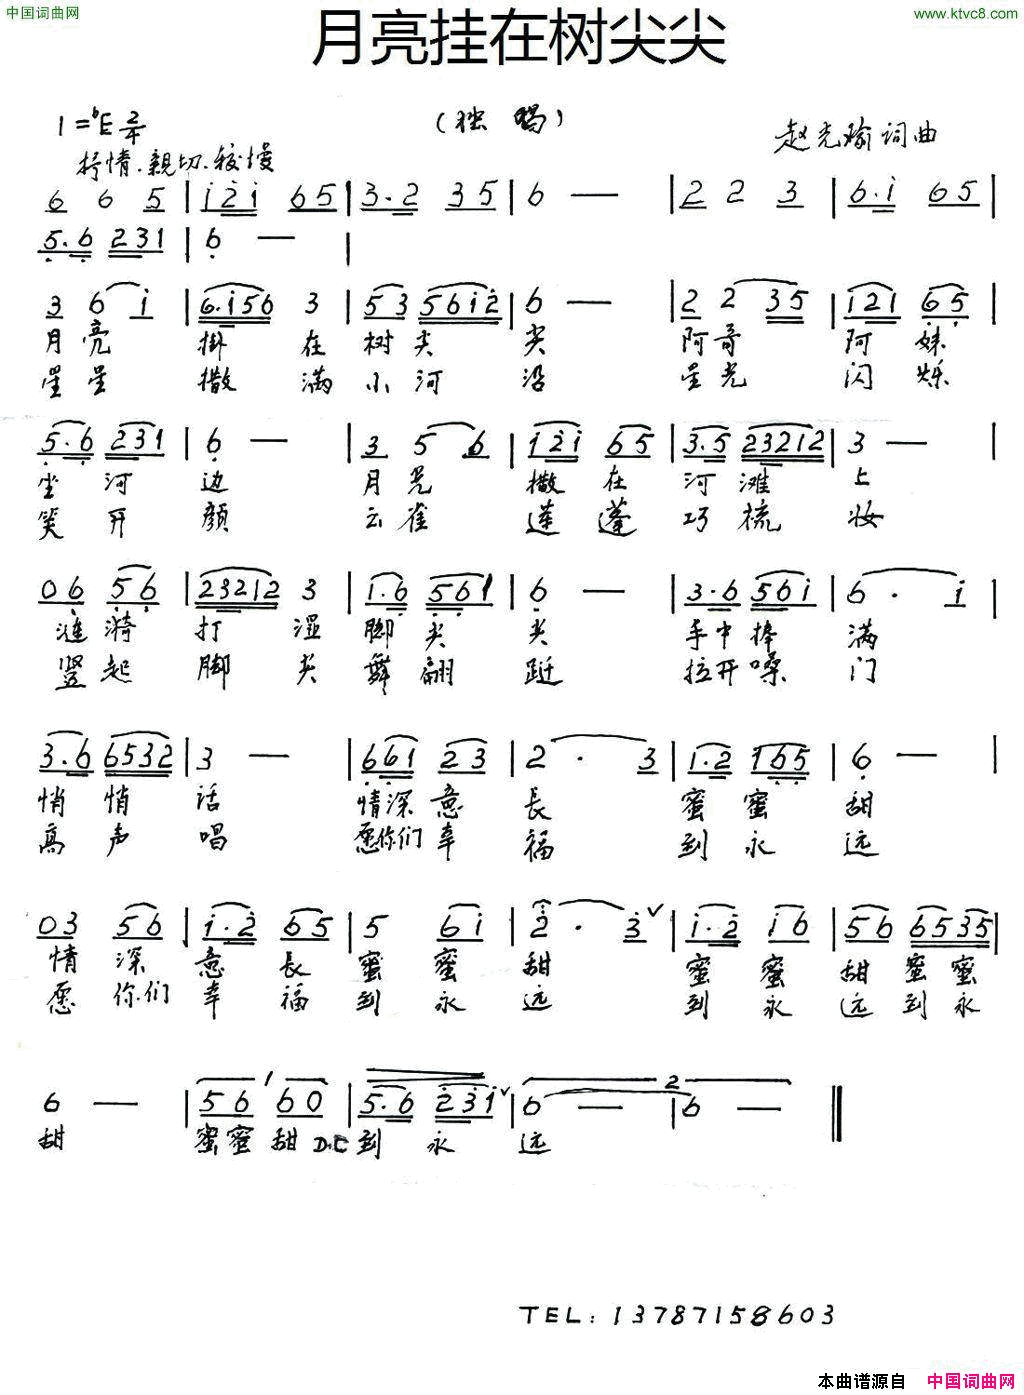 中国词曲网
www.ktvc8.com
月亮挂在树尖尖
(独唱)
1=♭E 2/4
赵光瑜词曲
抒情.亲切.较慢
6 6 5 | i 2 i 6 5 | 3. 2 3 5 | 6 — | 2 2 3 | 6. i 6 5 |
5. 6 2 3 1 | 6 — |
3 6 i | 6. i 5 6 3 | 5 3 5 6 i 2 | 6 — | 2 2 3 5 | 1 2 1 6 5 |
月亮 掛在 树尖 尖 阿哥 阿妹
星星 撒满 小河 沿 星光 闪烁
5. 6 2 3 1 | 6 — | 3 5 6 | i 2 i 6 5 | 3. 5 2 3 2 1 2 | 3 — |
坐河边 月光 撒在 河滩 上
笑开颜 云雀 莲蓬 巧梳 妆
0 6 5 6 | 2 3 2 1 2 3 | 1. 6 5 6 1 | 6 — | 3. 6 5 6 i | 6. i |
涟漪 打湿 脚尖 尖 手中捧 满
竖起 脚尖 舞翩 跹 拉开嗓 门
3. 6 6 5 3 2 | 3 — | 6 6 1 2 3 | 2. 3 | 1. 2 1 6 5 | 6 — |
悄悄 话 情深意 長 蜜蜜 甜
高声 唱 愿你们幸 福 到永 远
0 3 5 6 | i. 2 6 5 | 5 6 i | 2. 3 | i. 2 i 6 | 5 6 6 5 3 5 |
情深 意長 蜜蜜 甜 蜜蜜 甜蜜蜜
愿你们 幸福 到永 远 到永 远到永
6 — | 5 6 6 0 | 5. 6 2 3 i | 6 — | 6 — ‖
甜 蜜蜜甜 D.C 到永 远
TEL: 13787158603
本曲谱源自 中国词曲网